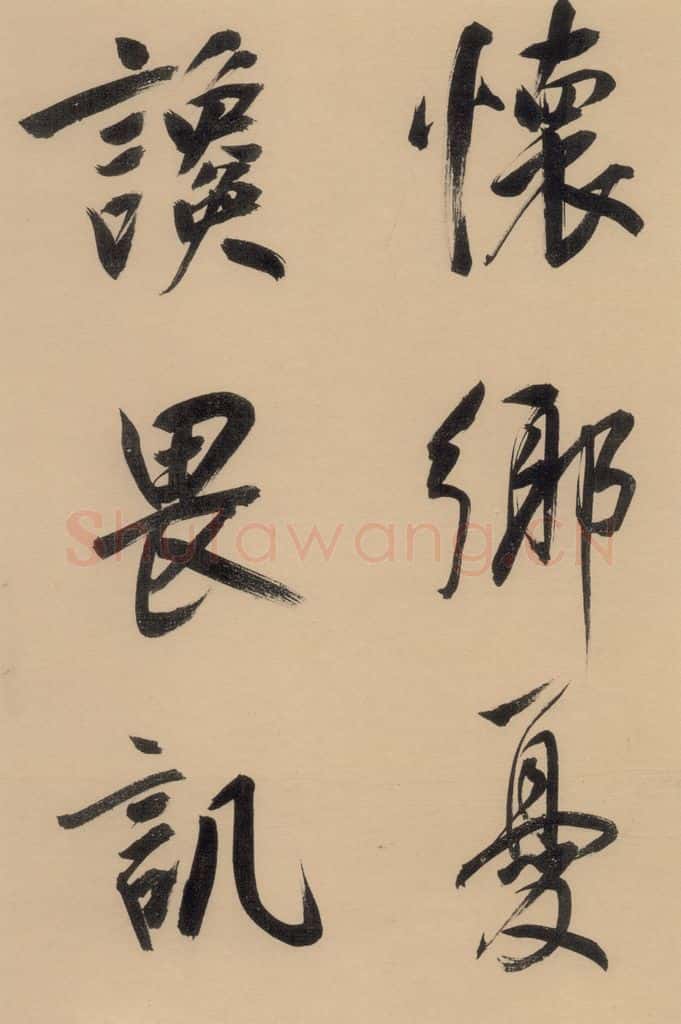 懷鄉憂
讒畏訊
Shufawang.CN